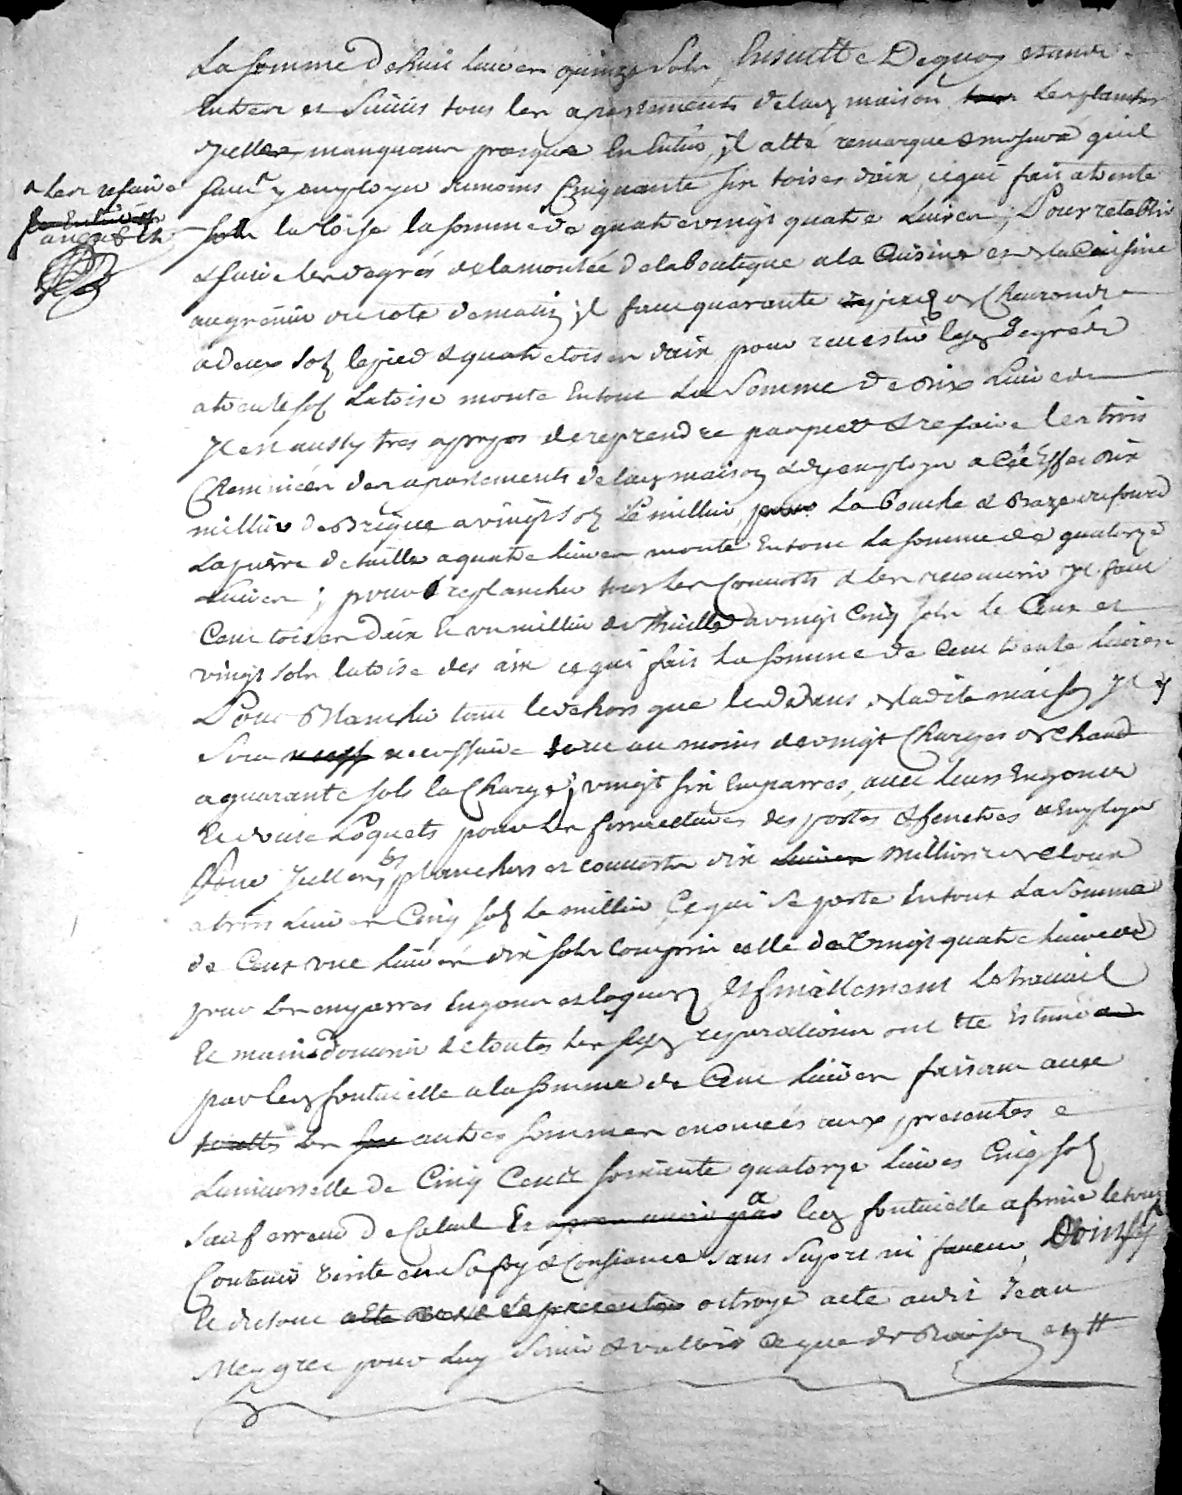 La somme de huit Livres quinze Sols, Ensuitte Dequoy etant
Entrer et Suivis tous les apartements delad maison les planches
Jcelles manquant presque En Entier, jl a été remarqué & mesuré quil
^ les refaire
en augets
faut y employer dumoins Cinquante six toises daix, cequi fait a trente
sols la toise la somme de quatrevingt quatre Livres; Pour retablir
& faire les degrés de la montée de la Boutique a la Cuisine et de la Cuisine
au grenier du coté dematin jl faut quarante pieds de Chevrond
a deux sols le pied & quatre toises daix pour revestir lesd degrés
a trente sols La toise monte En tout La Somme de dix Livres
Jl est aussy tres apropos de reprendre par pied & refaire les trois
Cheminées des apartements de lad maison & dy employer a Cet Effet dix
milliers de Brique a vingt sols Le millier, La Bouche & 
La pierre de taille a quatre Livres monte En tout La somme de quatorze
Livres; pour replancher tous les Couverts & les recouvrir jl faut
Cent toises daix & un millier de Thuilles a vingt Cinq sols le Cent et
vingt sols la toise des aix ce qui fait La somme de Cent trente Livres
Pour Blanchir tant le dehors que le dedans de ladite maison Jl y
Sera necessaire au moins de vingt Charges de Chaud
a quarante sols la Charge; vingt six Emparres, avec leurs Engonds
& douze Loquets pour les fermetures des portes & fenetres & Employer
Pour Jcelles, planchers et couverts dix milliers de Cloux
a trois Livres Cinq sols Le millier, Ce qui se porte En tout La Somme
de Cent une Livres dix sols Compris celle de Vingt quatre Livres
pour les emparres Engonds et loquets Et finallement Le travail
& main douvrier de toutes les susd reparations ont été Estimées
par led fontvieille a la somme de Cent Livres faisant avec
les autres sommes enoncées aux presentes
Luniverselle de Cinq Cents soixante quatorze Livres Cinq sols
Sauf erreur de Calcul Et led fontvieille afirmé le tout
Contenir verité en Sa foy & Consiance sans Suport ni faveur,
& du tout octroyé acte audit Jean
Meygret pour Luy Servir & valloir Ce que de Raison